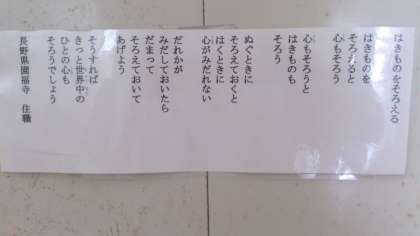 はきものをそろえる
はきものを
そろえると
心もそろう
心もそろうと
はきものも
そろう
ぬぐときに
そろえておくと
はくときに
心がみだれない
だれかが
みだしておいたら
だまって
そろえておいて
あげよう
そうすれば
きっと世界中の
ひとの心も
そろうでしょう
長野県圓福寺 住職